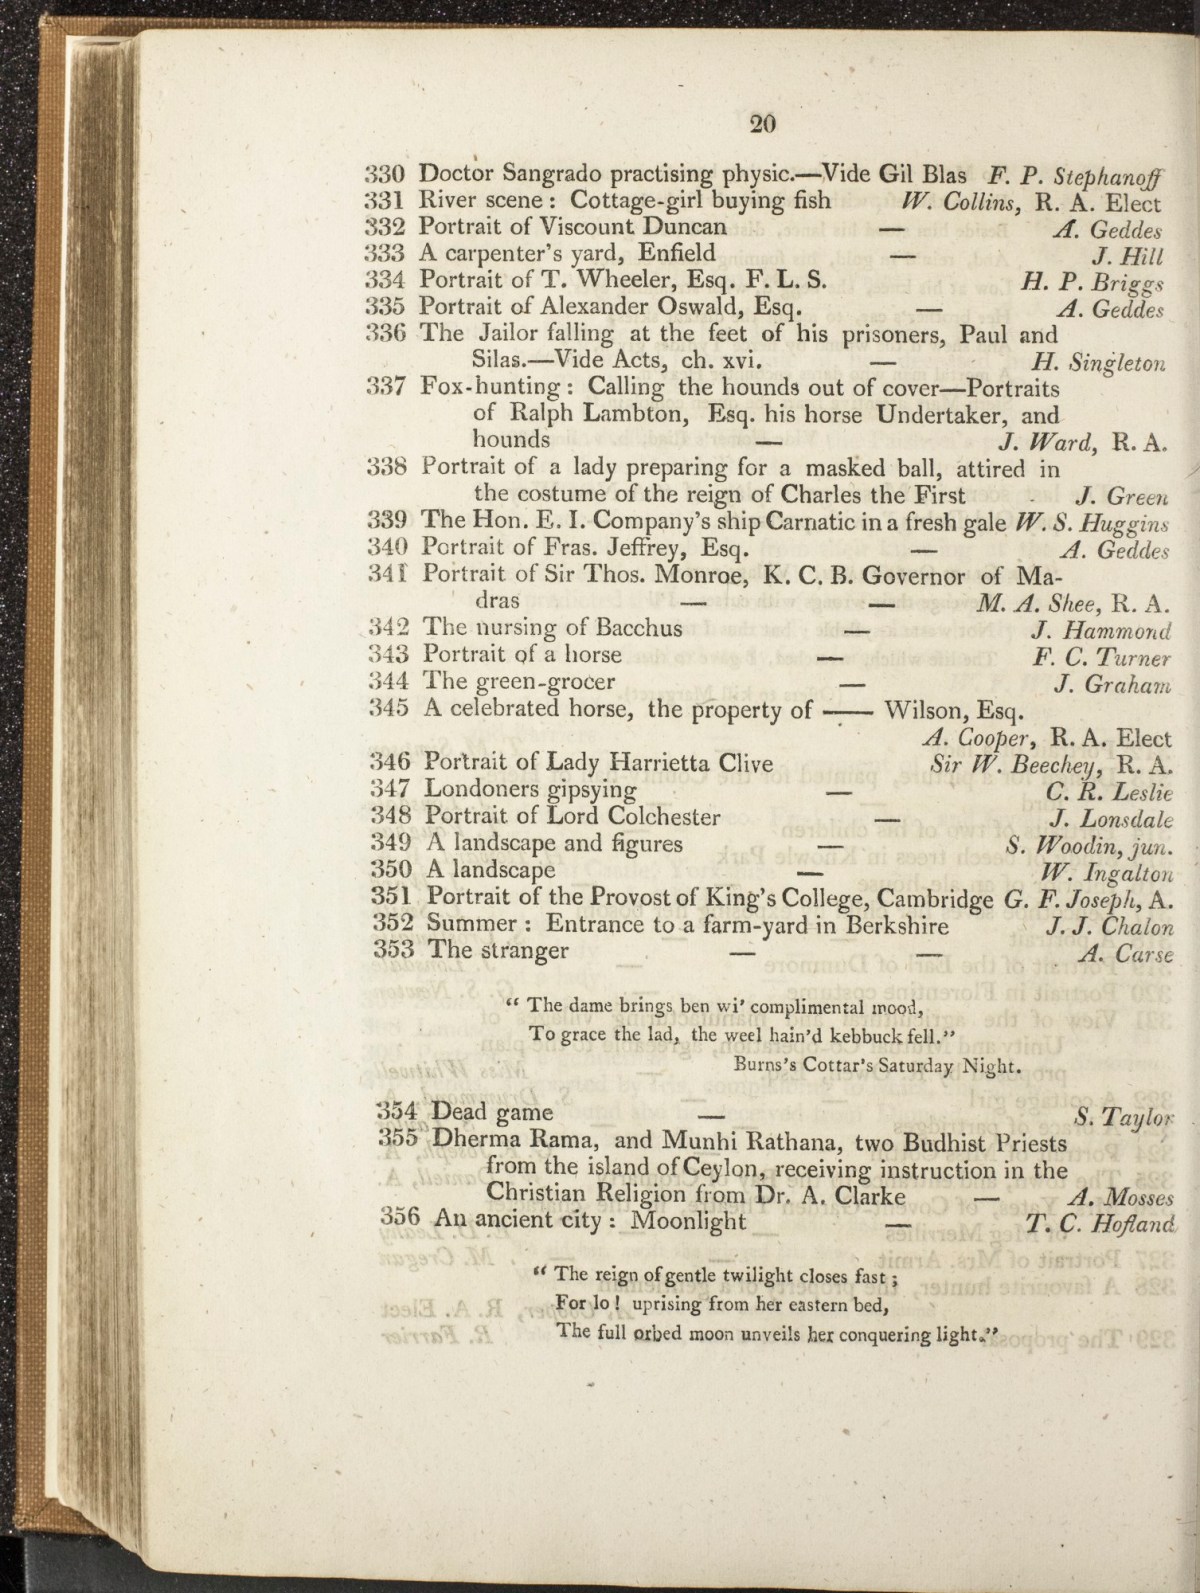 20
330 Doctor Sangrado practising physic.—Vide Gil Blas F. P. Stephanoff
331 River scene : Cottage-girl buying fish W. Collins, R. A. Elect
332 Portrait of Viscount Duncan — A. Geddes
333 A carpenter's yard, Enfield — J. Hill
334 Portrait of T. Wheeler, Esq. F. L. S. H. P. Briggs
335 Portrait of Alexander Oswald, Esq. — A. Geddes
336 The Jailor falling at the feet of his prisoners, Paul and
Silas.—Vide Acts, ch. xvi. — H. Singleton
337 Fox-hunting : Calling the hounds out of cover—Portraits
of Ralph Lambton, Esq. his horse Undertaker, and
hounds — J. Ward, R. A.
338 Portrait of a lady preparing for a masked ball, attired in
the costume of the reign of Charles the First - J. Green
339 The Hon. E. I. Company's ship Carnatic in a fresh gale W. S. Huggins
340 Portrait of Fras. Jeffrey, Esq. — A. Geddes
341 Portrait of Sir Thos. Monroe, K. C. B. Governor of Ma-
dras — — M. A. Shee, R. A.
342 The nursing of Bacchus — J. Hammond
343 Portrait of a horse — F. C. Turner
344 The green-grocer — J. Graham
345 A celebrated horse, the property of —— Wilson, Esq.
A. Cooper, R. A. Elect
346 Portrait of Lady Harrietta Clive Sir W. Beechey, R. A.
347 Londoners gipsying — C. R. Leslie
348 Portrait of Lord Colchester — J. Lonsdale
349 A landscape and figures — S. Woodin, jun.
350 A landscape — W. Ingalton
351 Portrait of the Provost of King's College, Cambridge G. F. Joseph, A.
352 Summer : Entrance to a farm-yard in Berkshire J. J. Chalon
353 The stranger — — A. Carse
“ The dame brings ben wi' complimental mood,
To grace the lad, the weel hain'd kebbuck fell.”
Burns's Cottar's Saturday Night.
354 Dead game — S. Taylor
355 Dherma Rama, and Munhi Rathana, two Budhist Priests
from the island of Ceylon, receiving instruction in the
Christian Religion from Dr. A. Clarke — A. Mosses
356 An ancient city : Moonlight — T. C. Hofland
“ The reign of gentle twilight closes fast ;
For lo ! uprising from her eastern bed,
The full orbed moon unveils her conquering light.”